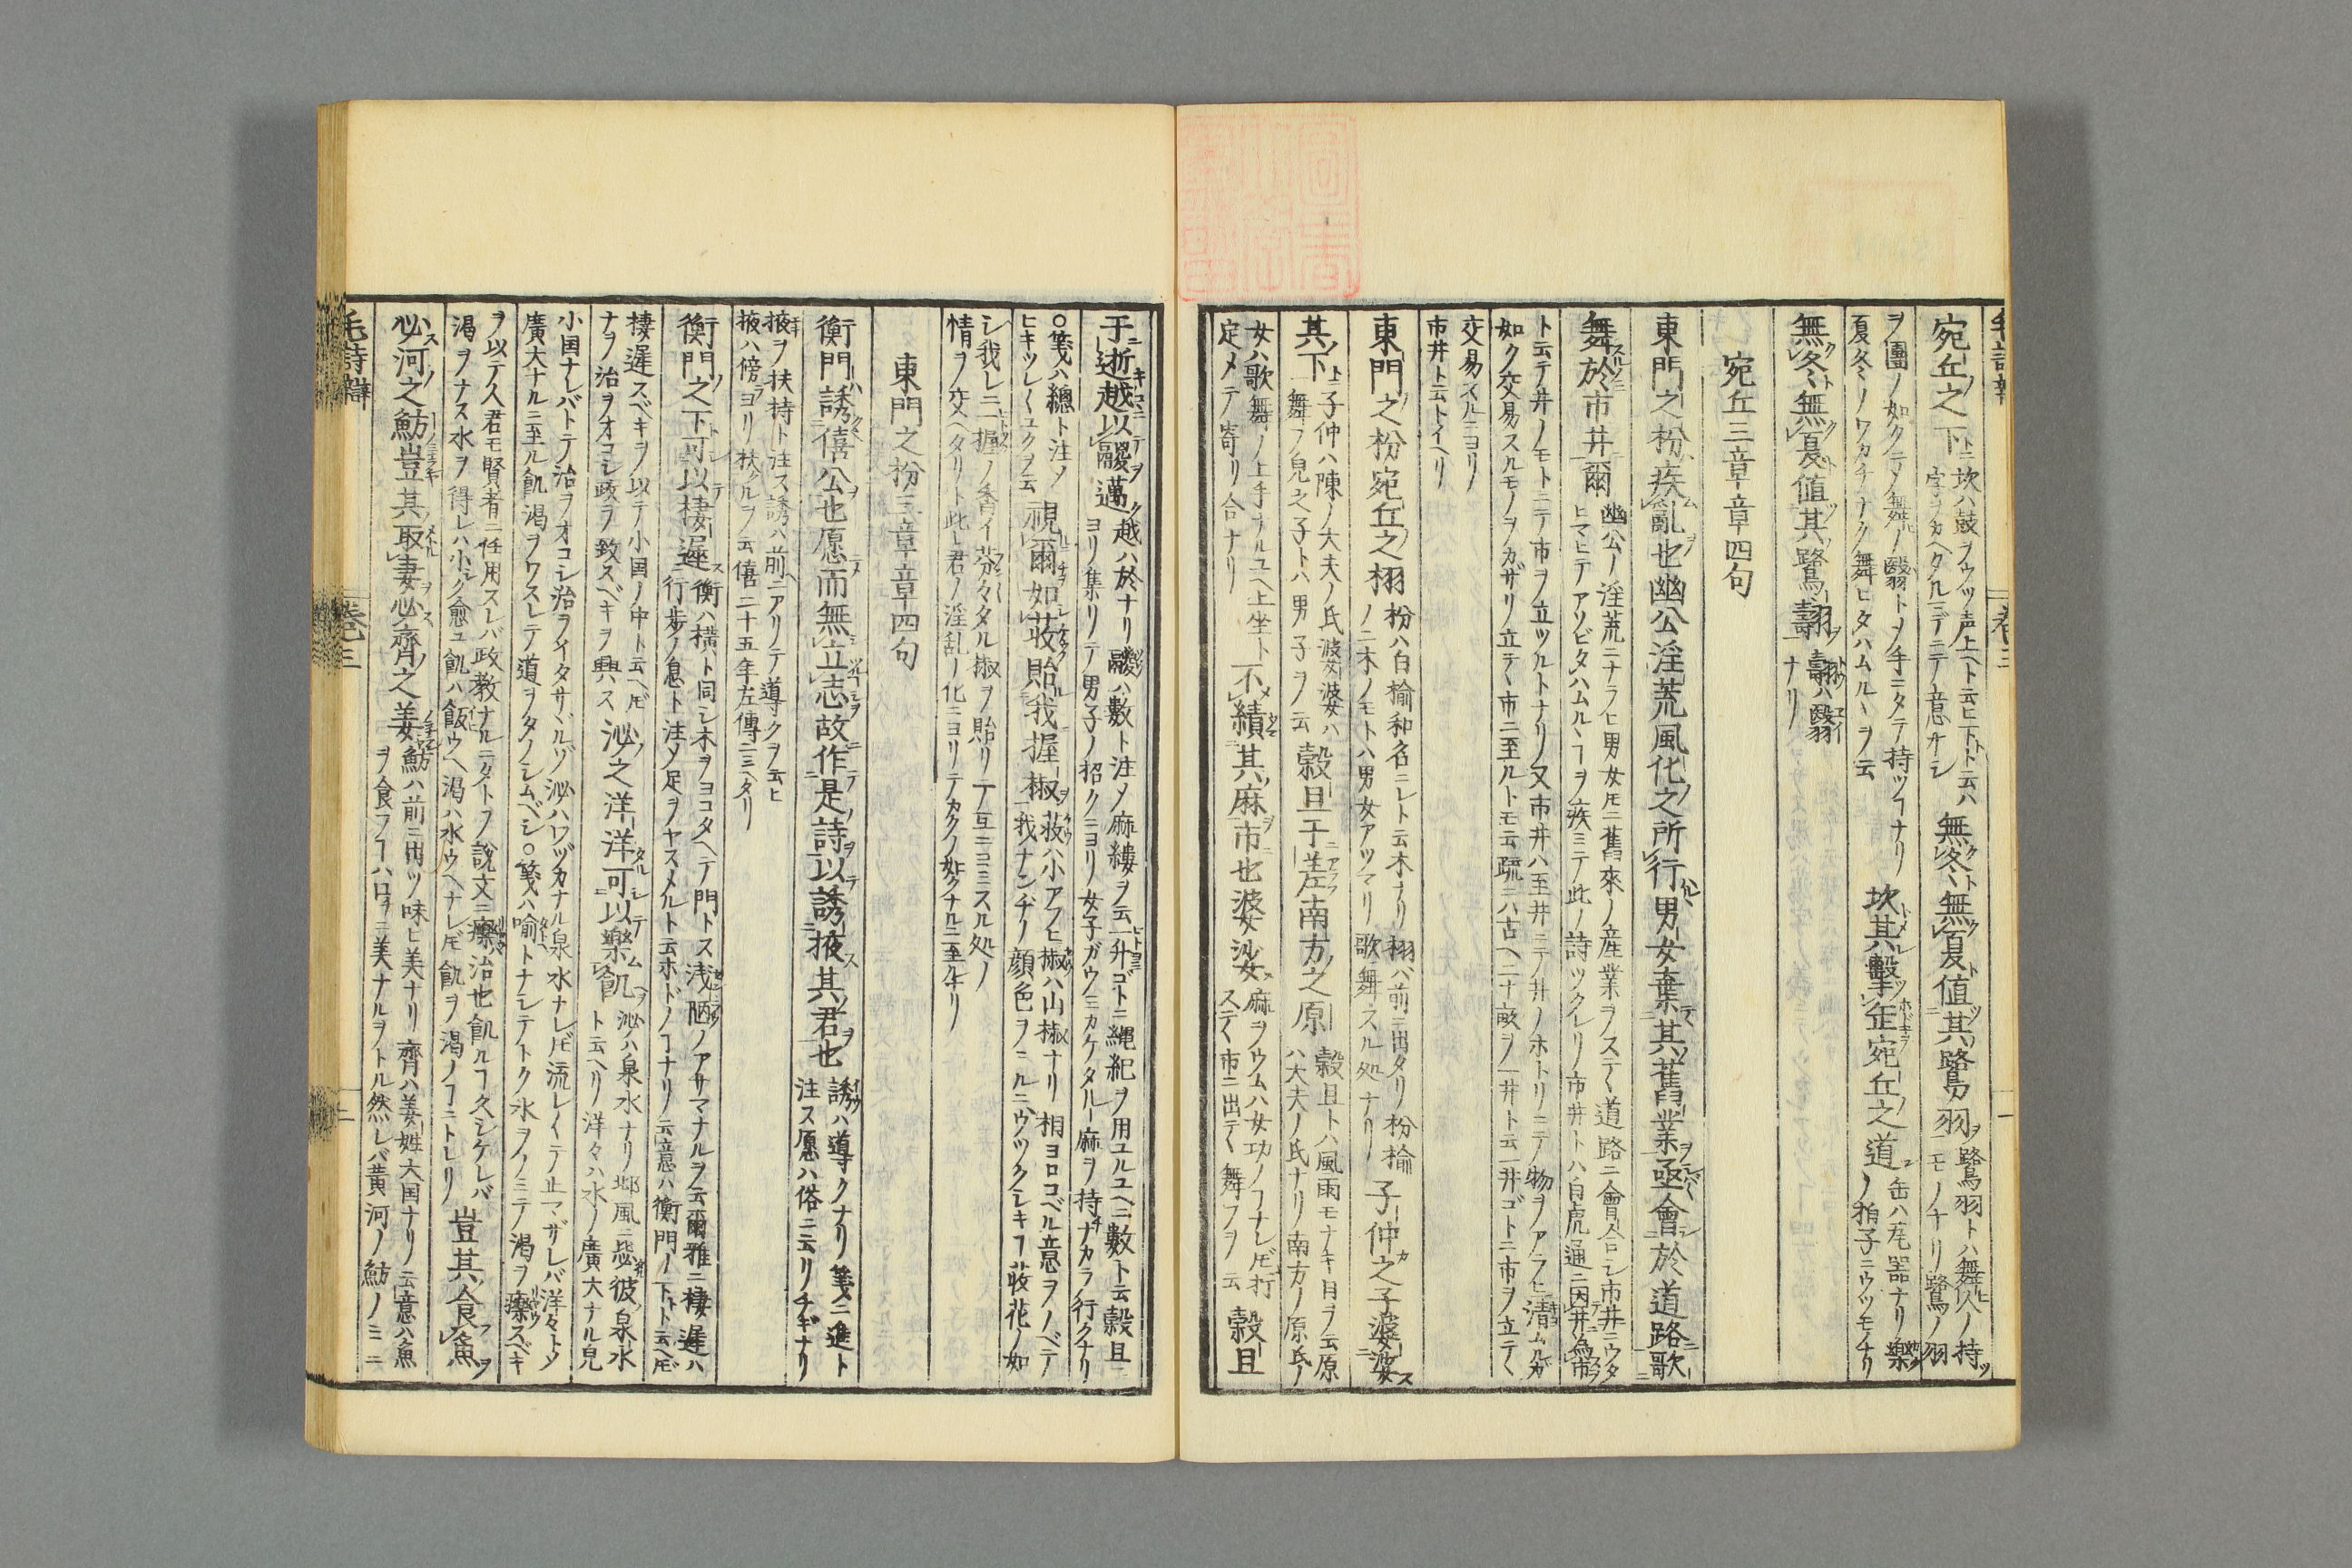 宛丘之下 坎ハ鼓ヲウツ声上ヘト云ヒ下ト云ハ
字ヲカヘタルミデニテ意ナシ
無冬無夏値其鷺羽 鷺羽トハ舞人ノ持
モノナリ鷺ノ羽
ヲ團ノ如クシテ舞ノ翳トメ手ニタテ持ツヿナリ
夏冬ノワカチナク舞ヒタハムルヽヲ云
坎其擊缶宛丘之道 缶ハ瓦器ナリ樂
ノ拍子ニウツモノナリ
無冬無夏値其鷺翿 翿ハ翳
ナリ
宛丘三章章四句
東門之枌疾亂也幽公淫荒風化之所行男女棄其舊業亟會於道路歌
舞於市井爾 幽公ノ淫荒ニナラヒ男女トモニ舊來ノ産業ヲステヽ道路ニ會合シ市井ニウタ
ヒマヒテアソビタハムルヽヿヲ疾ミテ此ノ詩ツクレリ市井トハ白虎通ニ因井為市
ト云テ井ノモトニテ市ヲ立ツルトナリ又市井ハ至井ニテ井ノホトリニテ物ヲアラヒ清ムルガ
如ク交易スルモノヲカザリ立テヽ市ニ至ルトモ云疏ニハ古ヘ二十畝ヲ一井ト云一井ゴトニ市ヲ立テヽ
交易スルニヨリ
市井ト云トイヘリ
東門之枌宛丘之栩 枌ハ白榆和名ニレト云木ナリ栩ハ前ニ出タリ枌榆
ノ二木ノモトハ男女アツマリ歌舞スル処ナリ
子仲之子婆娑
其下 子仲ハ陳ノ大夫ノ氏婆娑ハ
舞フ皃之子トハ男子ヲ云
穀旦于差南方之原 穀旦トハ風雨モナキ日ヲ云原
ハ大夫ノ氏ナリ南方ノ原氏ノ
女ハ歌舞ノ上手ナルユヘ上坐ト
定メテ寄リ合ナリ
不績其麻市也婆娑 麻ヲウムハ女功ノヿナレドモ打
ステヽ市ニ出テヽ舞フヲ云
穀旦
于逝越以鬷邁 越ハ於ナリ鬷ハ數ト注メ麻縷ヲ云一升ゴトニ縄紀ヲ用ユルユヘニ數ト云穀旦
ヨリ集リテ男子ノ招クニヨリ女子ガウミカケタル麻ヲ持ナカラ行クナリ
○箋ハ總ト注メ
ヒキツレヽユクヲ云
視爾如荍貽我握椒 荍ハ小アフヒ椒ハ山椒ナリ相ヨロコベル意ヲノベテ
我ナンヂノ顔色ヲミルニウツクシキヿ荍花ノ如
シ我レニ一握ノ香イ芬々タル椒ヲ貽リテ互ニヨミスル処ノ
情ヲ交ヘタリト此レ君ノ淫乱ノ化ニヨリテカクノ如クナルニ至ルナリ
東門之枌三章章四句
衡門誘僖公也愿而無立志故作是詩以誘掖其君也 誘ハ導クナリ箋ニ進ト
注ス愿ハ俗ニ云リチギナリ
掖ヲ扶持ト注ス誘ハ前ニアリテ導クヲ云ヒ
掖ハ傍ヨリ扶クルヲ云僖二十五年左傳ニミヘタリ
衡門之下可以棲遲 衡ハ横ト同シ木ヲヨコタヘテ門トス浅陋ノアサマナルヲ云爾雅ニ棲遲ハ
行歩ノ息ト注メ足ヲヤスメルト云ホドノヿナリ云意ハ衡門ノ下ト云ヘドモ
棲遲スベキヲ以テ小国ノ中ト云ヘドモ
ナヲ治ヲオコシ政ヲ致スベキヲ興ス
泌之洋洋可以樂飢 泌ハ泉水ナリ邶風ニ毖彼泉水
ト云ヘリ洋々ハ水ノ廣大ナル皃
小国ナレバトテ治ヲオコシ治ヲイタサヾルヅ泌ハワヅカナル泉水ナレドモ流レイテ止マザレバ洋々トメ
廣大ナルニ至ル飢渇ヲワスレテ道ヲタノシムベシ○箋ハ喻トナシテトク水ヲノミテ渇ヲ㿉スベキ
ヲ以テ人君モ賢者ニ任用スレバ政教ナルニタトフ說文ニ治也飢ルヿ久シケレバ
渇ヲナス水ヲ得レハ小シク愈ユ飢ハ飯ウヘ渇ハ水ウヘナレドモ飢ヲ渇ノヿニトレリ
豈其食魚
必河之魴豈其取妻必齊之姜 魴ハ前ニ出ツ味ヒ美ナリ齊ハ姜姓大国ナリノ云意ハ魚
ヲ食フヿハ口ヲニ美ナルヲトル然レバ黄河ノ魴ノミニ
毛詩辨
卷三
二